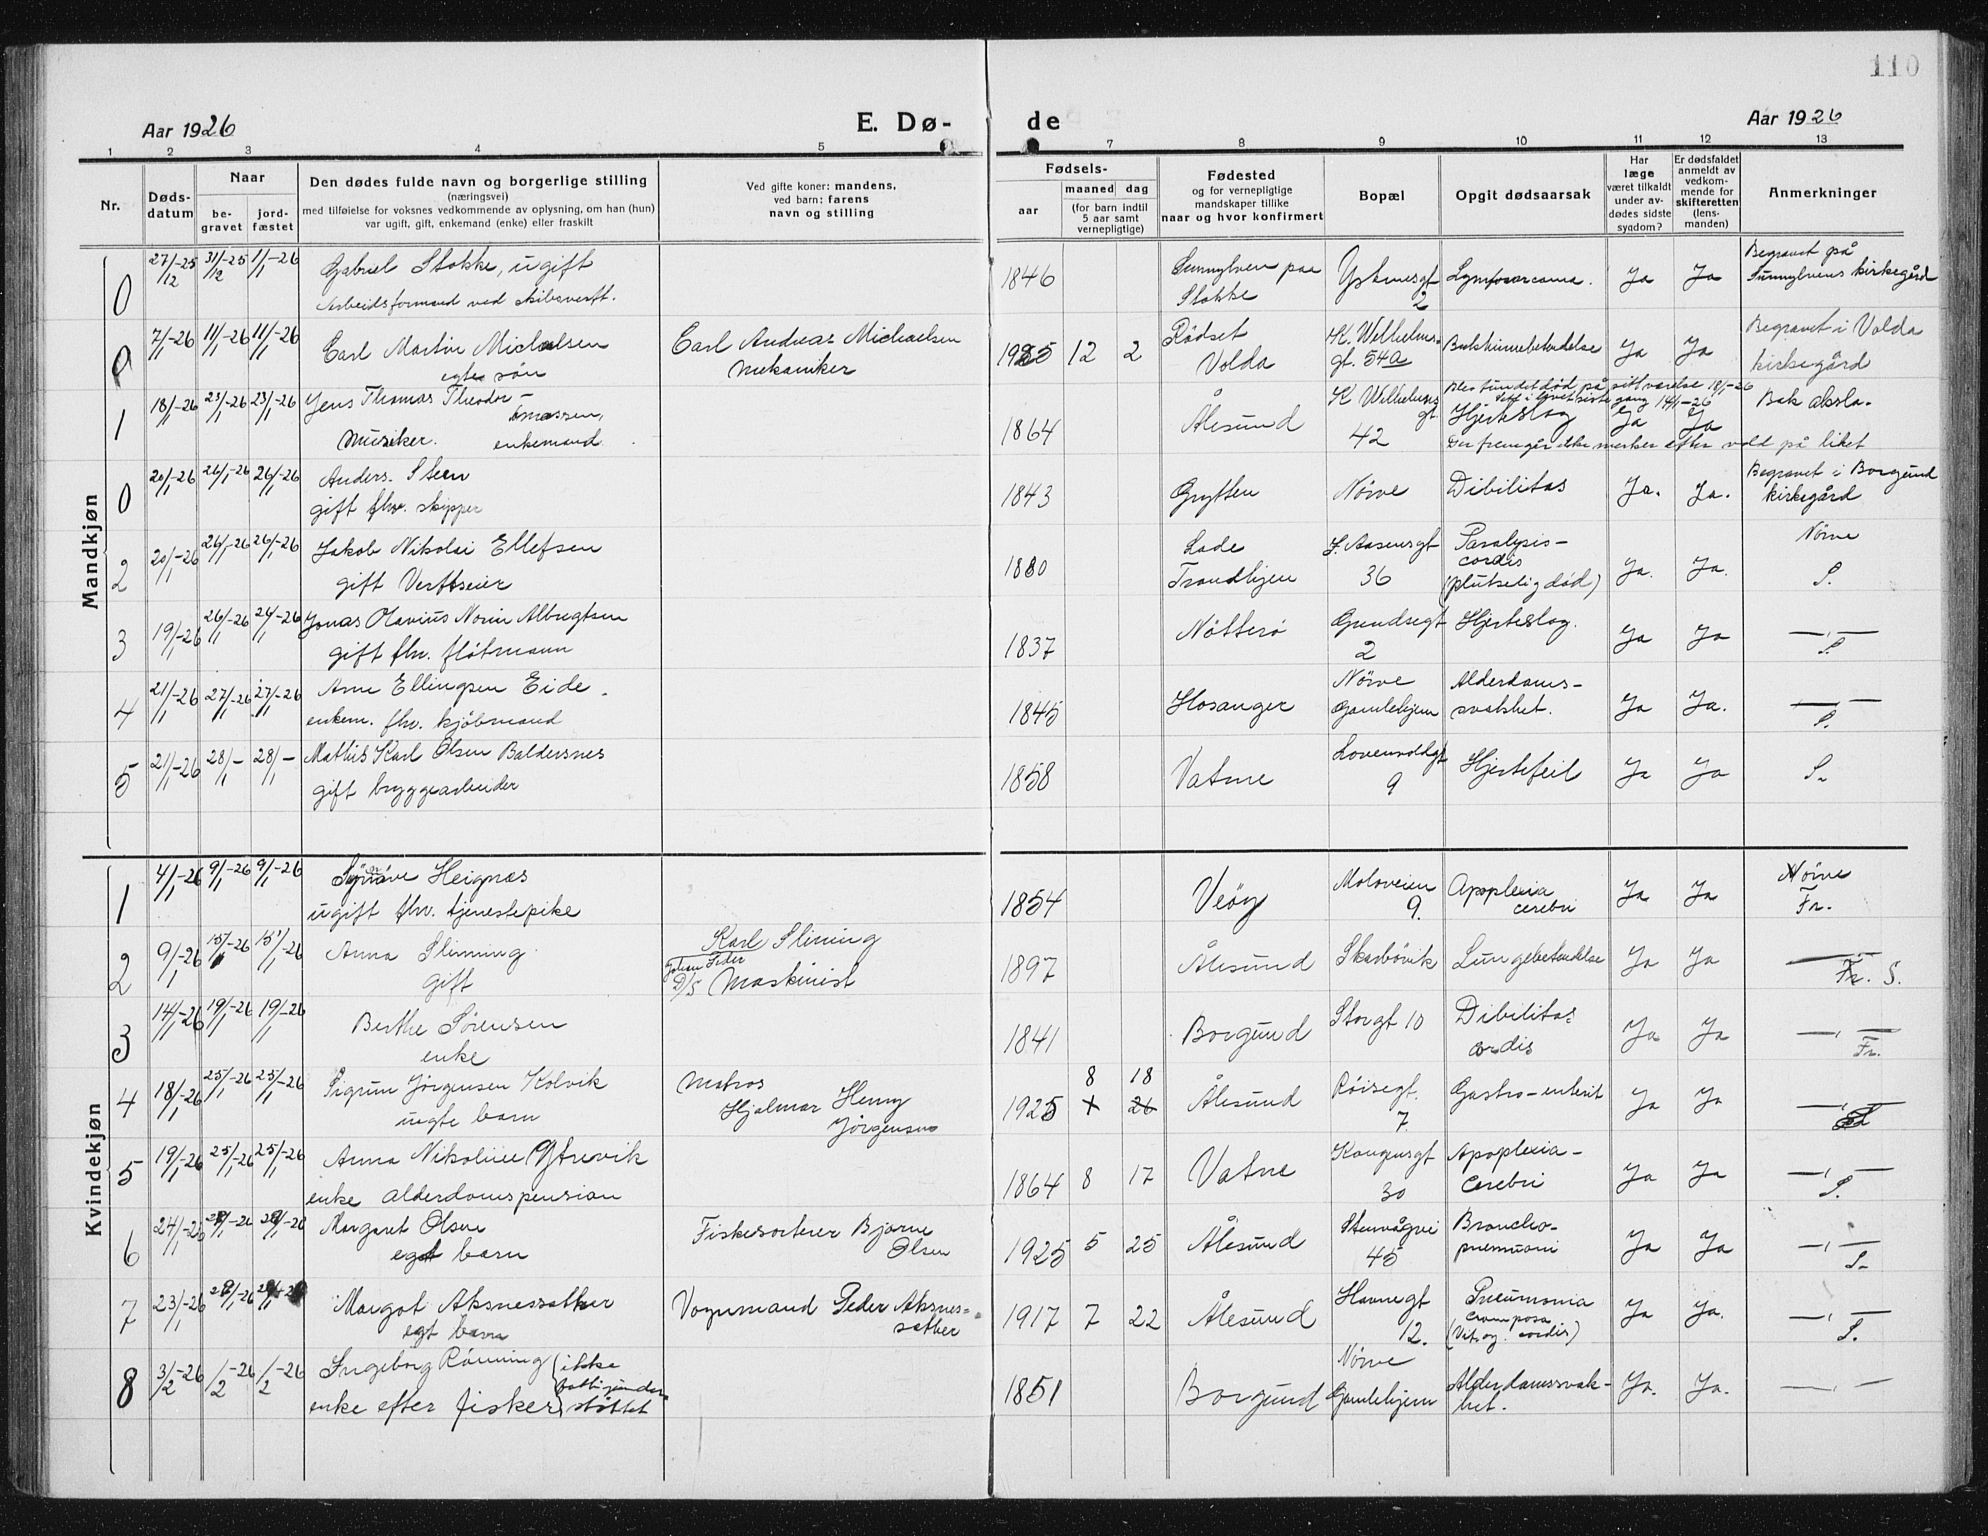 110
Aar 1926
E. Dø-
de
Aar 1926
1 2 3 4 5 7 8 9 10 11 12 13
Nr.
Døds-
datum
Naar
be-
gravet
jord-
fæstet
Den dødes fulde navn og borgerlige stilling
(næringsvei)
med tilføielse for voksnes vedkommende av oplysning, om han (hun)
var ugift, gift, enkemand (enke) eller fraskilt
Ved gifte koner: mandens,
ved barn: farens
navn og stilling
Fødsels-
aar
maaned dag
(for barn indtil
5 aar samt
vernepligtige)
Fødested
og for vernepligtige
mandskaper tillike
naar og hvor konfirmert
Bopæl
Opgit dødsaarsak
Har
læge
været tilkaldt
under av-
dødes sidste
sygdom?
Er dødsfaldet
anmeldt av
vedkom-
mende for
skifteretten
(lens-
manden)
Anmerkninger
Mandkjøn
0 27/12-25 31/12-25 1/1-26 Gabriel Stokke, ugift
Arbeidsformand ved skibsverft.
1846 Sunnylven paa
Stokke
Ystenesgt
2
Lymfosarcama. Ja Ja
Begravet på
Sunnylvens kirkegård
0 7/1-26 11/1-26 11/1-26 Carl Martin Michalsen
egte søn
Carl Andreas Michaelsen
Mekaniker
1925 12 2 Rødset
Volda
K. Wilhelms-
gt. 54a
Bukhinnebetendelse Ja Ja
Begravet i Volda
kirkegård
1 18/1-26 23/1-26 23/1-26 Jens Thomas Theodor
Musiker. enkemand
1864 Ålesund
K Wilhelms
gt.
42
Blev fundet død på sitt værelse 18/1-26
Sett i livet siste gang 14/1-26
Hjerteslag Ja Ja
Der fremgår ikke merker efter vold på liket
Bak aksla.
0 20/1-26 26/1-26 26/1-26 Anders. Steen
gift fhv. skipper
1843 Grytten Nørve Dibilitas Ja. Ja.
Begravet i Borgund
kirkegård
2 20/1-26 26/1-26 26/1-26 Jakob Nikolai Ellefsen
gift Verftseier
1880 Lade
Trondhjem
I. Aasensgt
36
Paralysis-
cordis
(plutselig død)
Ja. Ja.
Nørve
S.
3 19/1-26 26/1-26 26/1-26 Jonas Olavius Norin Albregtsen
gift fhv. fløtmann
1837 Nøtterø Grundsegt
2
Hjerteslag. Ja Ja —,—
S.
4 21/1-26 27/1-26 27/1-26 Arne Ellingsen Eide.
enkem. fhv. kjøbmand
1845 Hosanger Nørve
Gamlehjem
Alderdoms-
svakhet.
Ja Ja. —,—
S.
5 21/1-26 28/1- 28/1- Mathis Karl Olsen Baldersnes
gift bryggearbeider
1858 Vatne Lovenvoldgt
9
Hjertefeil Ja Ja S.
Kvindekjøn
1 4/1-26 9/1-26 9/1-26 Heignæs
ugift fhv. tjenestepike
1854 Veøy Moloveien
9.
Apoplexia
cerebri
Ja Ja Nørve
Fr.
2 9/1-26 15/1-26 15/1-26 Anna Slinning.
gift
Karl Slinning
Johan Peder
D/S Maskinist
1897 Ålesund Skarbøvik Lungebetendelse Ja Ja —
Fr. S.
3 14/1-26 19/1-26 19/1-26 Berthe Sørensen
enke
1841 Borgund Storgt 10 Dibilitas
cordis
Ja Ja —,—
Fr.
4 18/1-26 25/1-26 25/1-26 Sigrun Jørgensen Kolvik
uegte barn
Matros
Hjalmar Henry
Jørgensen
8 18
1925 26 Ålesund Røisegt.
7.
Gastro-enterit Ja Ja —,—
5 19/1-26 25/1-26 25/1-26 Anna Nikoline Ytrevik
enke alderdomspension
1864 8 17 Vatne Kongensgt
30
Apoplexia-
cerebri
Ja Ja —,—
S.
6 24/1-26 Margaret Olsen
egt barn
Fiskesorterer Bjarne
Olsen
1925 5 25 Ålesund Stenvågvei
45
Broncho-
pnemuoni
Ja Ja —,—
S.
7 23/1-26 Margot Aksnessæther
egt barn
Vognmand Peder Aksnes-
sæther
1917 7 22 Ålesund Havnegt
12.
Pneumonia
crouposa
(Vit. og. cordis)
Ja Ja. —,—
S.
8 3/2-26 /2-26 /2-26 Ingeborg Rønning (ikke
enke efter fisker støttet
1851 Borgund Nørve
Gamlehjem
Alderdomssvak-
het.
Ja. Ja. —,—